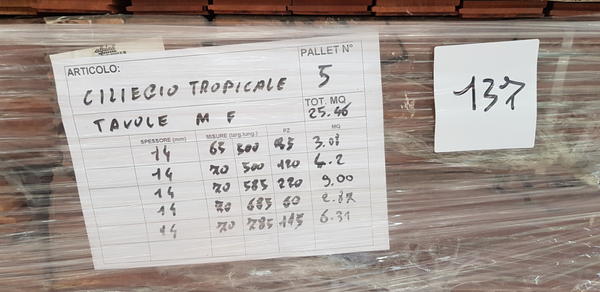 ARTICOLO:
PALLET N°
CILIEGIO TROPICALE
5
TAVOLE M F
TOT. MQ
25.46
SPESSORE (mm) MISURE (larg.lung.) PZ MQ
14 65 500 95 3.08
14 70 500 120 4.2
14 70 585 220 9.00
14 70 685 60 2.87
14 70 785 115 6.31
137